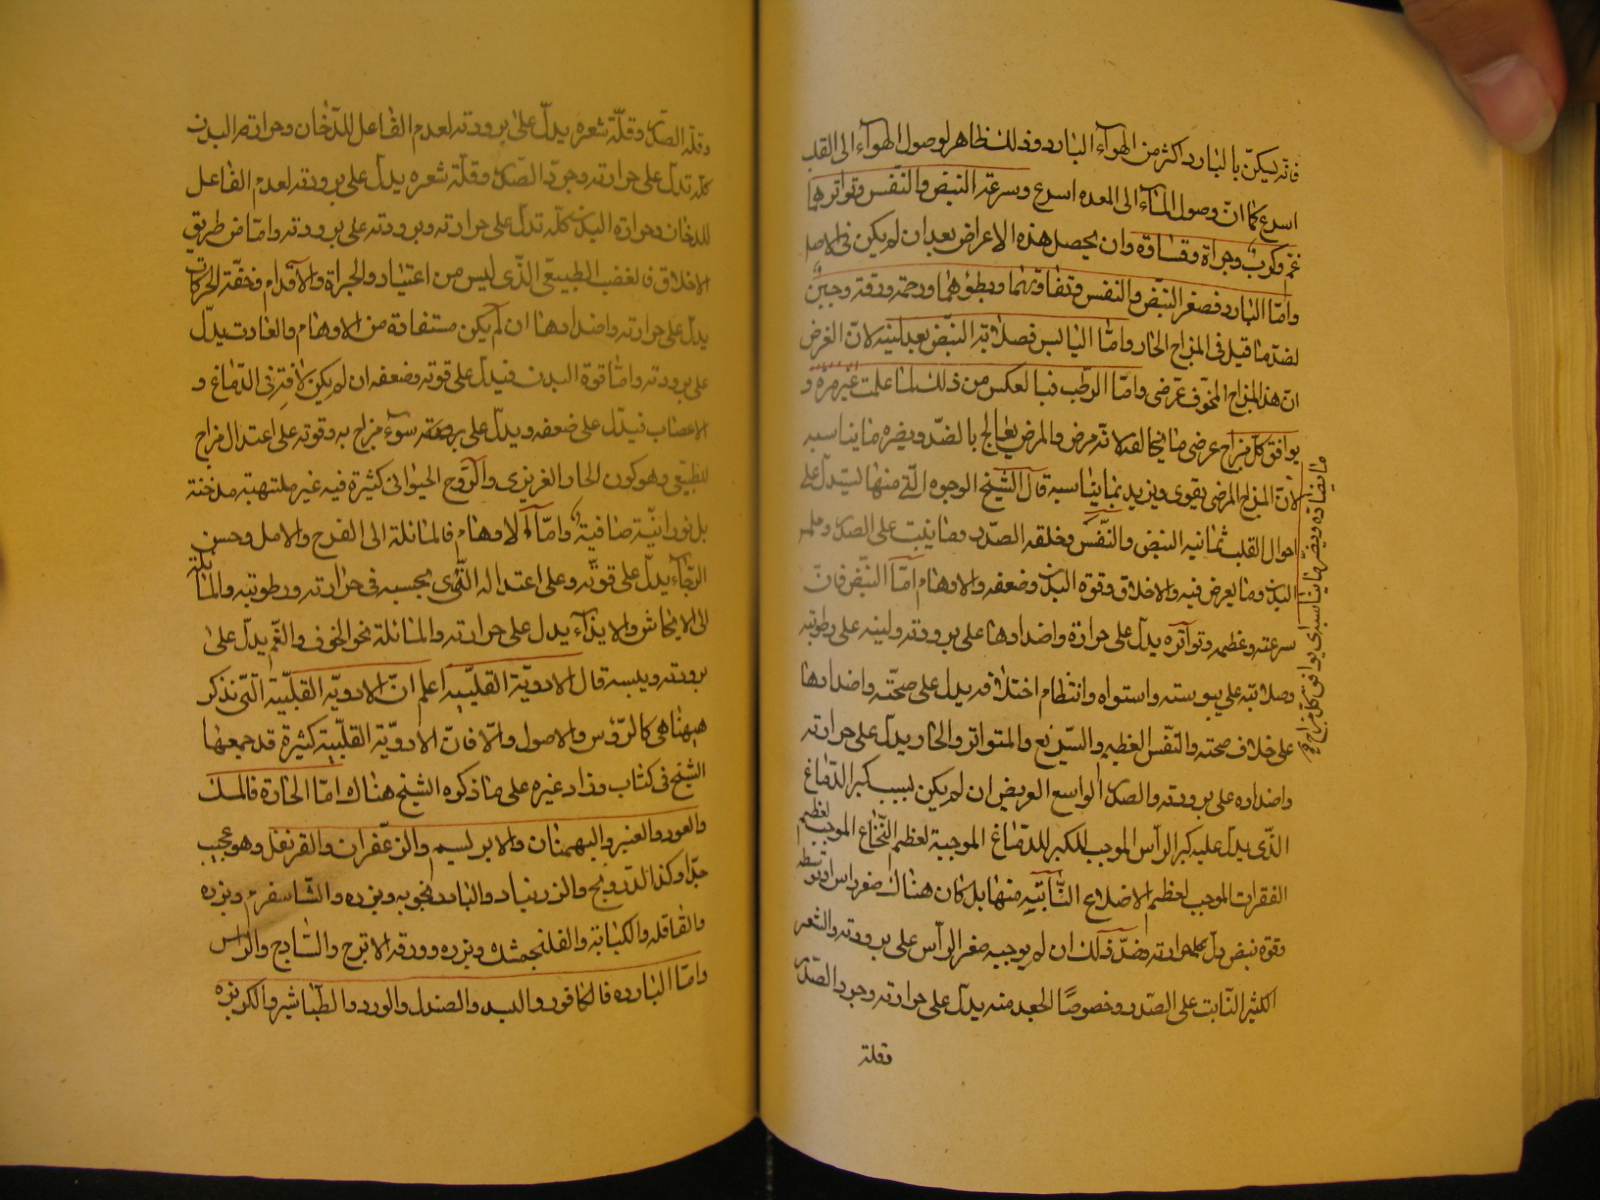 فانّه يسكن بالبارد اكثر من الهوآء البارد وذلك ظاهر لوصول الهوآء الى القلب
اسرع كما انّ وصول المآء الى المعده اسرع وسرعة النبض والنّفس وتواترهما
غمّ وكرب وجرأة وقساوة وان يحصل هذه الاعراض بعد ان لم يكن فى الاصل
وامّا البارد فصغر النبّض والنفس وتفاوتهما وبطؤهما ورحمة ورقة وجبن
لضدّ ما قيل فى المزاج الحار وامّا اليابس فصلابة النبّض بعد لينه لانّ الغرض
انّ هذا المزاج عرضى وامّا الرطب فبالعكس من ذلك لما علمت غير مرة و
يوافق كلّ مزاج عرضى ما يخالفه لانّه مرض والمرض يعالج بالضدّ ويضره ما يناسبه
لانّ المزاج المرضى يقوى ويزيد بما يناسبه قال الشّيخ الوجوه الّتى منها ليستدلّ على
احوال القلب ثمانيه النبض والنّفس وخلقه الصدر وما ينبت على الصدر وملمس
البدن وما يعرض فيه والاخلاق وقوة البدن وضعفه والاوهام امّا النبّض فانّ
سرعته وعظمه وتواتره يدلّ على حرارة واضدادها على برودته ولينه على رطوبته
وصلابته على يبوسته واستواه وانتظام اختلافه يدل على صحّته واضدادها
على خلاف صحته والنّفس العظيم والسّريع والمتواتر والحار يدلّ على حرارته
واضداده على برودته والصدر الواسع العريض ان لم يكن لسبب كبر الدّماغ
الذّى يدلّ عليه كبر الرأس الموجب للكبر للدّماغ الموجبة لعظم النّخاع الموجب لعظم
الفقرات الموجب لعظم الاضلاع النّابتة منها بل كان هناك صغر رأس او توسطه
وقوة نبض دلّ على حرارته وضدّ ذلك ان لم يوجبه صغر الرأس على برودته والشعر
الكثير النّابت على الصّدر وخصوصًا الجعد منه يدلّ على حرارته وجرد الصّدر
وقلة
ما يضاده ويضر ما يناسبه اى يوافق كلّ مزاج
وقلّة الصدر وقلّة شعره يدلّ على برودته لعدم الفاعل للدّخان وحرارة البدن
كلّه تدلّ على حرارته وجرد الصّدر وقلّة شعره يدلّ على برودته لعدم الفاعل
للدخان وحرارة البدن كلّه تدلّ على حرارته وبرودته على برودته وامّا من طريق
الاخلاق فالغضب الطبيعّى الذّى ليس من اعتياد والجرأة والاقدام وخفّة الحركات
يدلّ على حرارته واضدادها ان لم يكن مستفادة من الاوهام والعادت يدلّ
على برودته وامّا قوة البدن فيدلّ على قوته وضعفه ان لم يكن لآفة فى الدّماغ و
الاعصاب فيدلّ على ضعفه ويدلّ على سوء مزاج به وقوته على اعتدال مزاج
للطبيعّى وهو كون الحار الغريزى والرّوح الحيوانى كثيرة فيه غير ملتهبة مدخنة
بل نورانيّة صافية وامّا الاوهام فالمائلة الى الفرح والامل وحسن
الرّجآء يدلّ على قوتّه وعلى اعتداله الذّى بحسبه فى حرارته ورطوبته والمائلة
الى الايحاش والايذآء يدل على حرارته والمائلة نحو الخوف والغّم يدلّ على
برودته ويبسه قال الادويّة القلبّيه اعلم انّ الادويّة القلبّية التّى نذكر
هيهنا هى كالرؤس والاصول والّا فانّ الادويّة القلبّية كثيرة قد جمعها
الشّيخ فى كتاب وزاد غيره على ما ذكره الشّيخ هناك امّا الحارة فالمسك
والعود والعنبر والبهمنان والابريسم والزعفران والقرنفل وهو عجيب
جدّا وكذا الدّرونج والزرنباد والبادرنجبويه وبزره والشّاسفرم وبزره
والقاقله والكبابة والفلنجمشك وبزره وورق الاترج والسّادج والراسن
وامّا البارده فالكافور والبسد والصندل والورد والطّباشير والكزبره